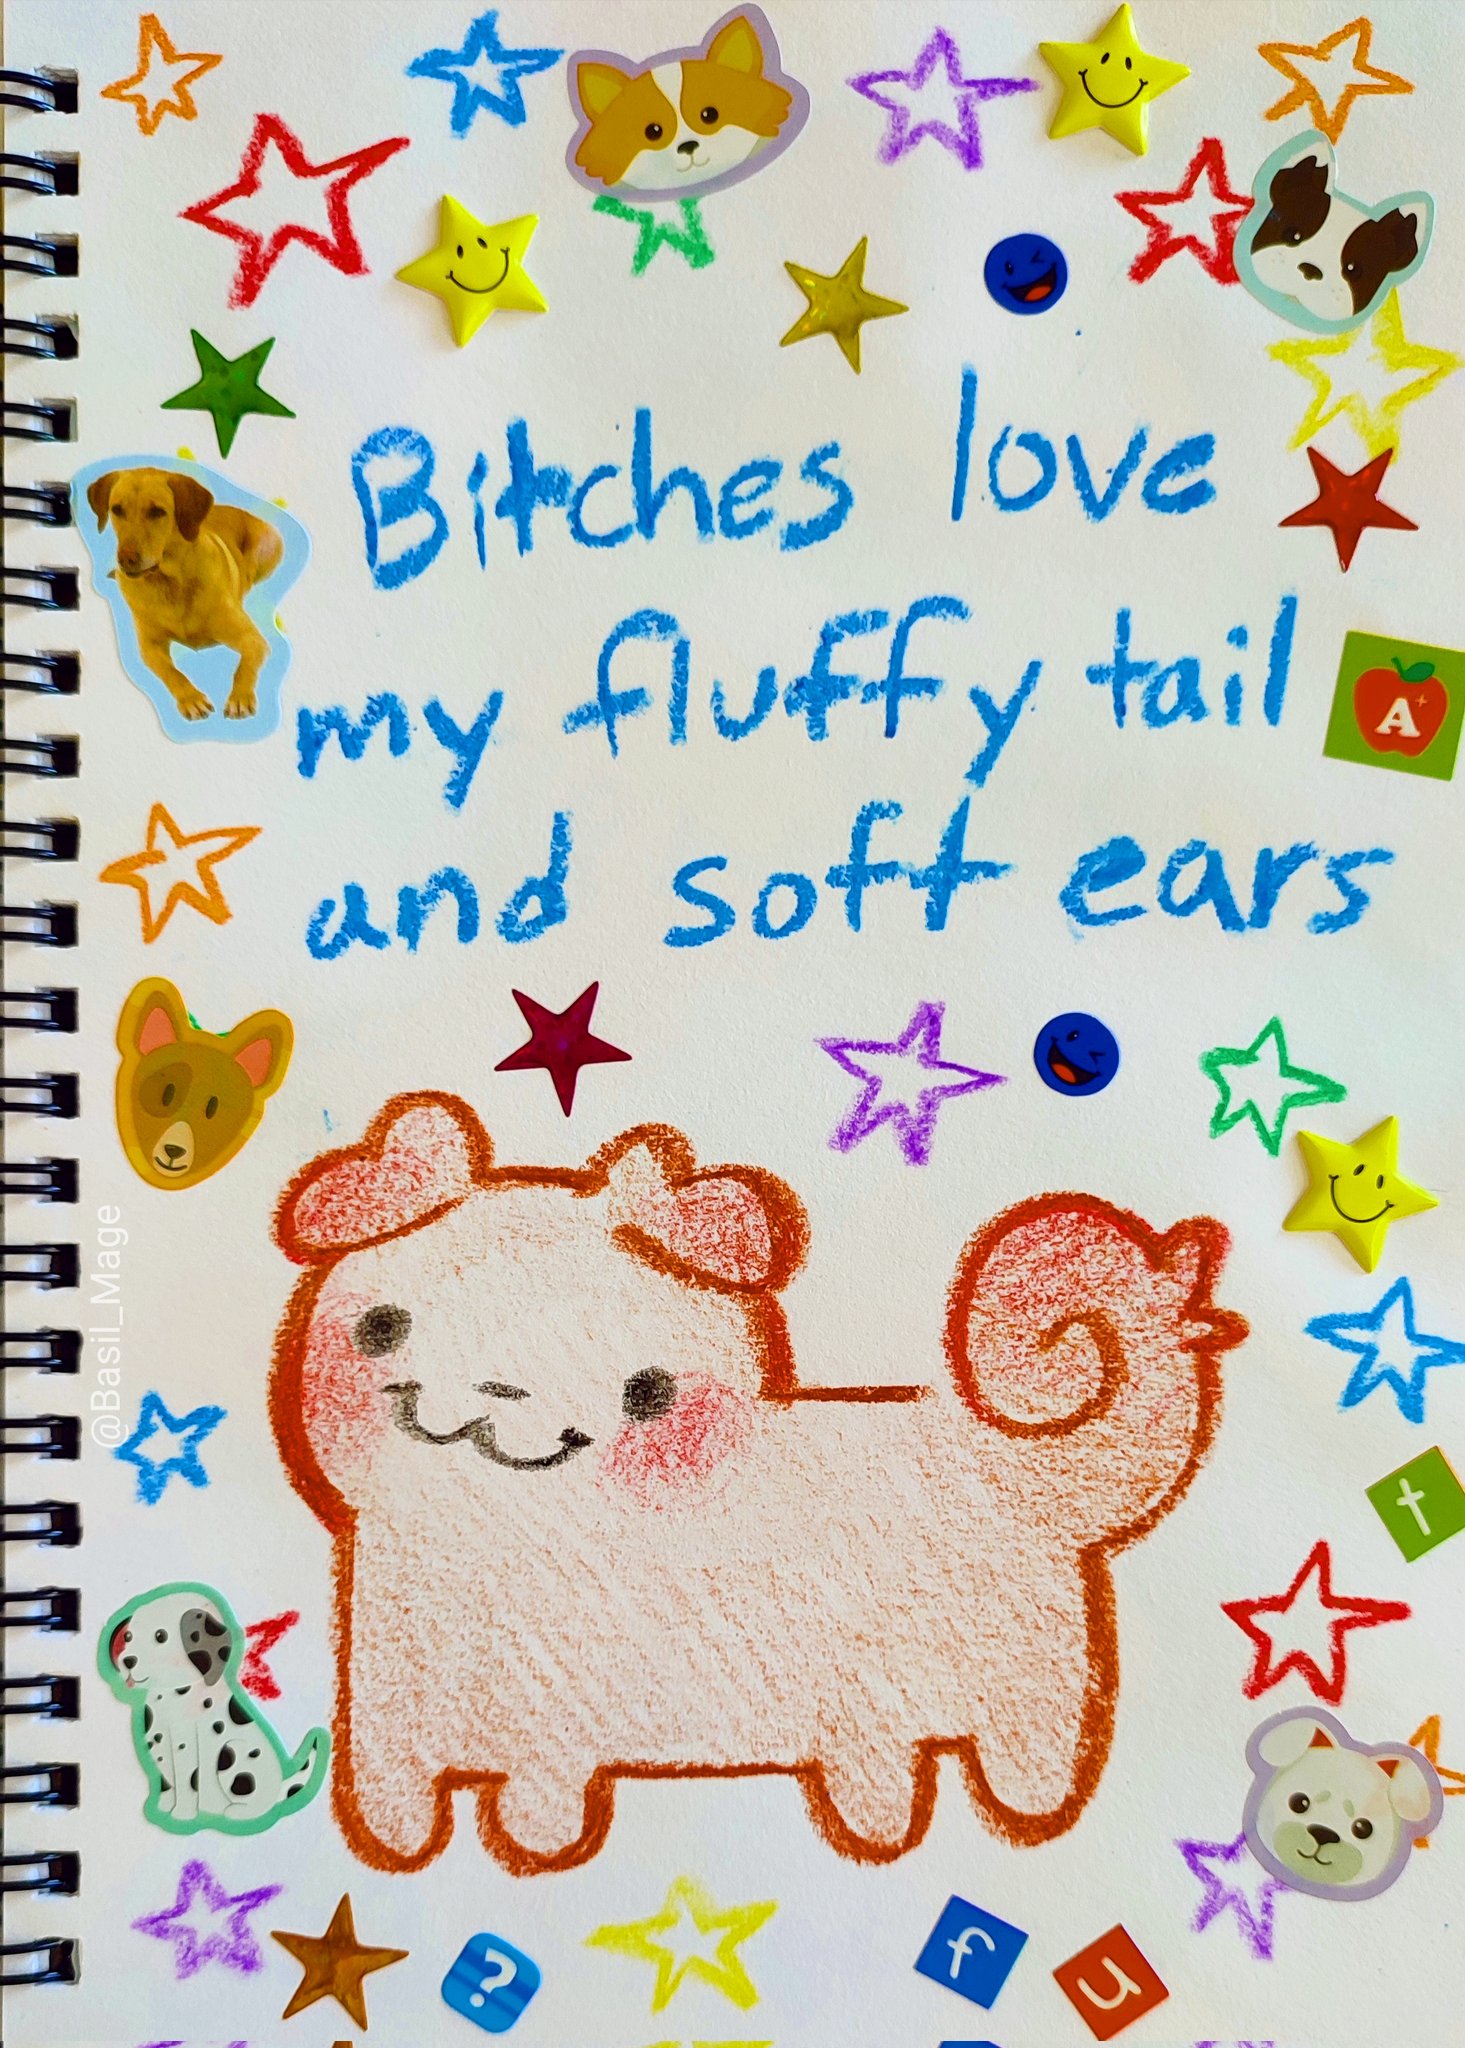 Bitches love
my fluffy tail
A
and soft ears
@Basil_Mage
t
?
f
u